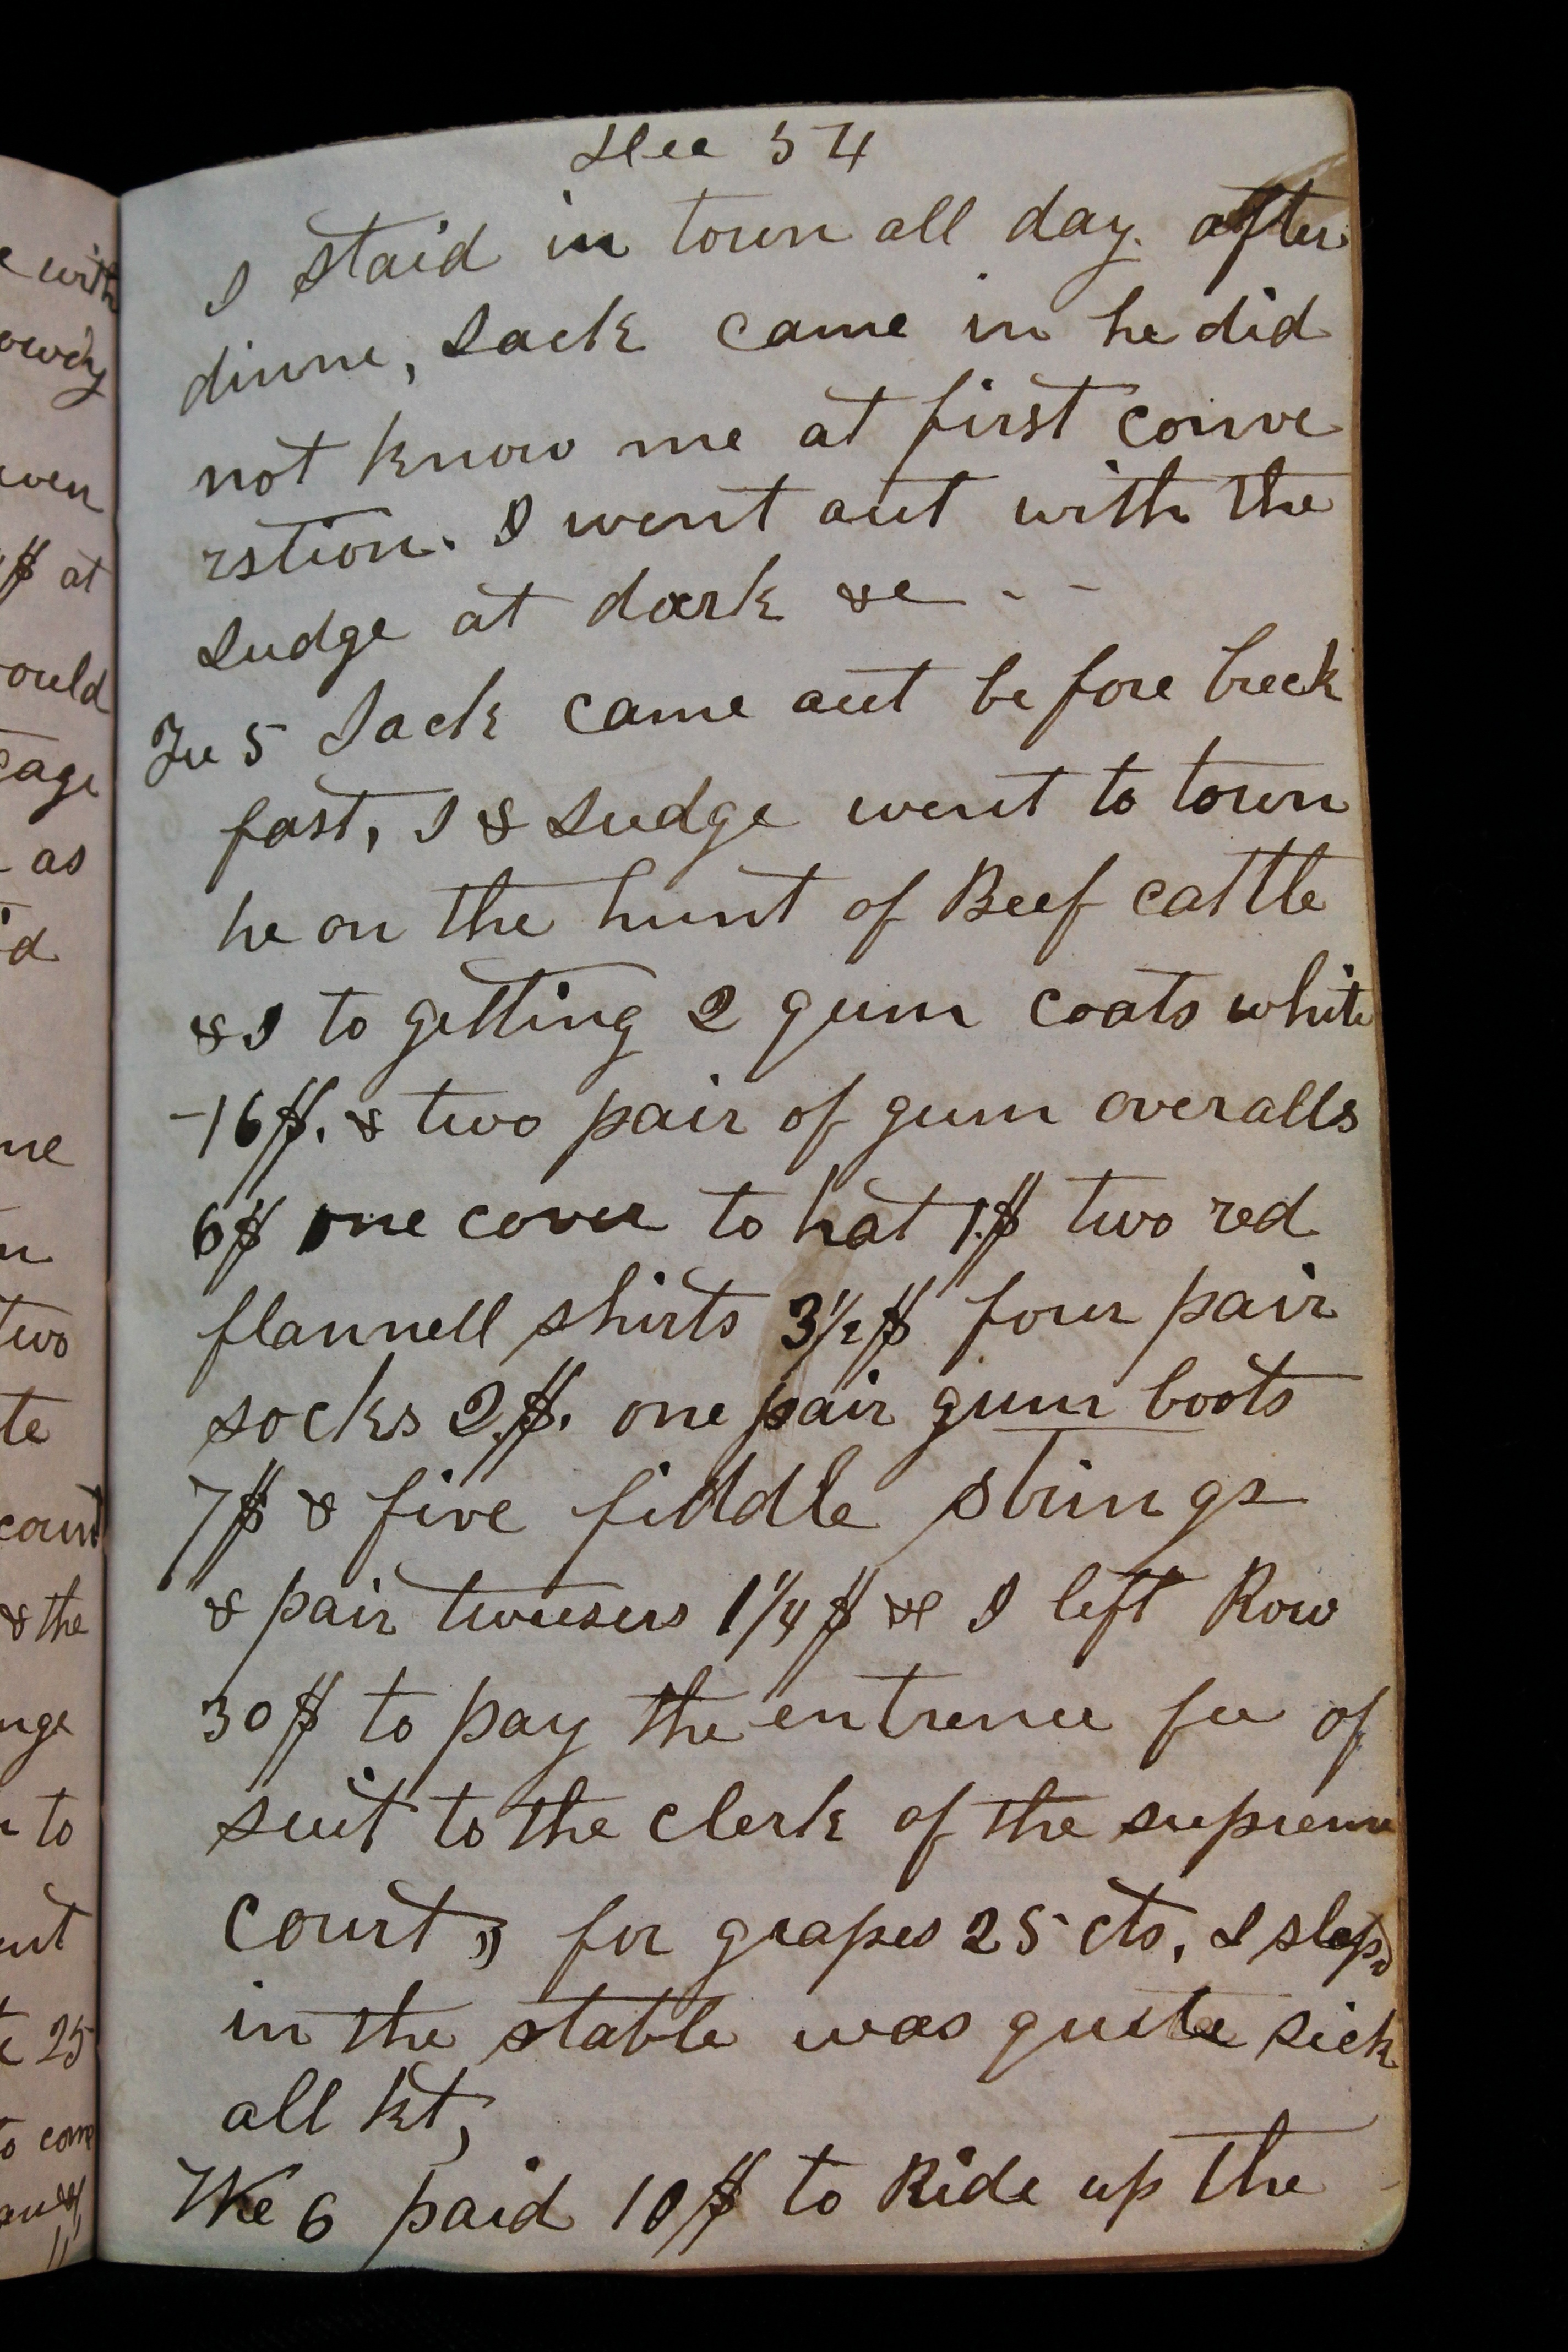 Dec 54
I staid in town all day. after
dinne, Jack came in he did
not know me at first conve
rstion. I went out with the
Judge at dark &c - -
Tu 5 Jack came out before breck
fast, I & Judge went to town
he on the hunt of Beef cattle
& I to getting 2 gum coats white
-16$. & two pair of gum overalls
6$ one cover to hat 1.$ two red
flannell shirts 3½$ four pair
socks 2.$. one pair gum boots
7$ & five fiddle strings
& pair twusers 1¼$ &c I left Row
30$ to pay the entrence fee of
suit to the clerk of the supreme
court, for grapes 25 cts, I slep
in the stable was quite sick
all
We 6 paid 10$ to Ride up the